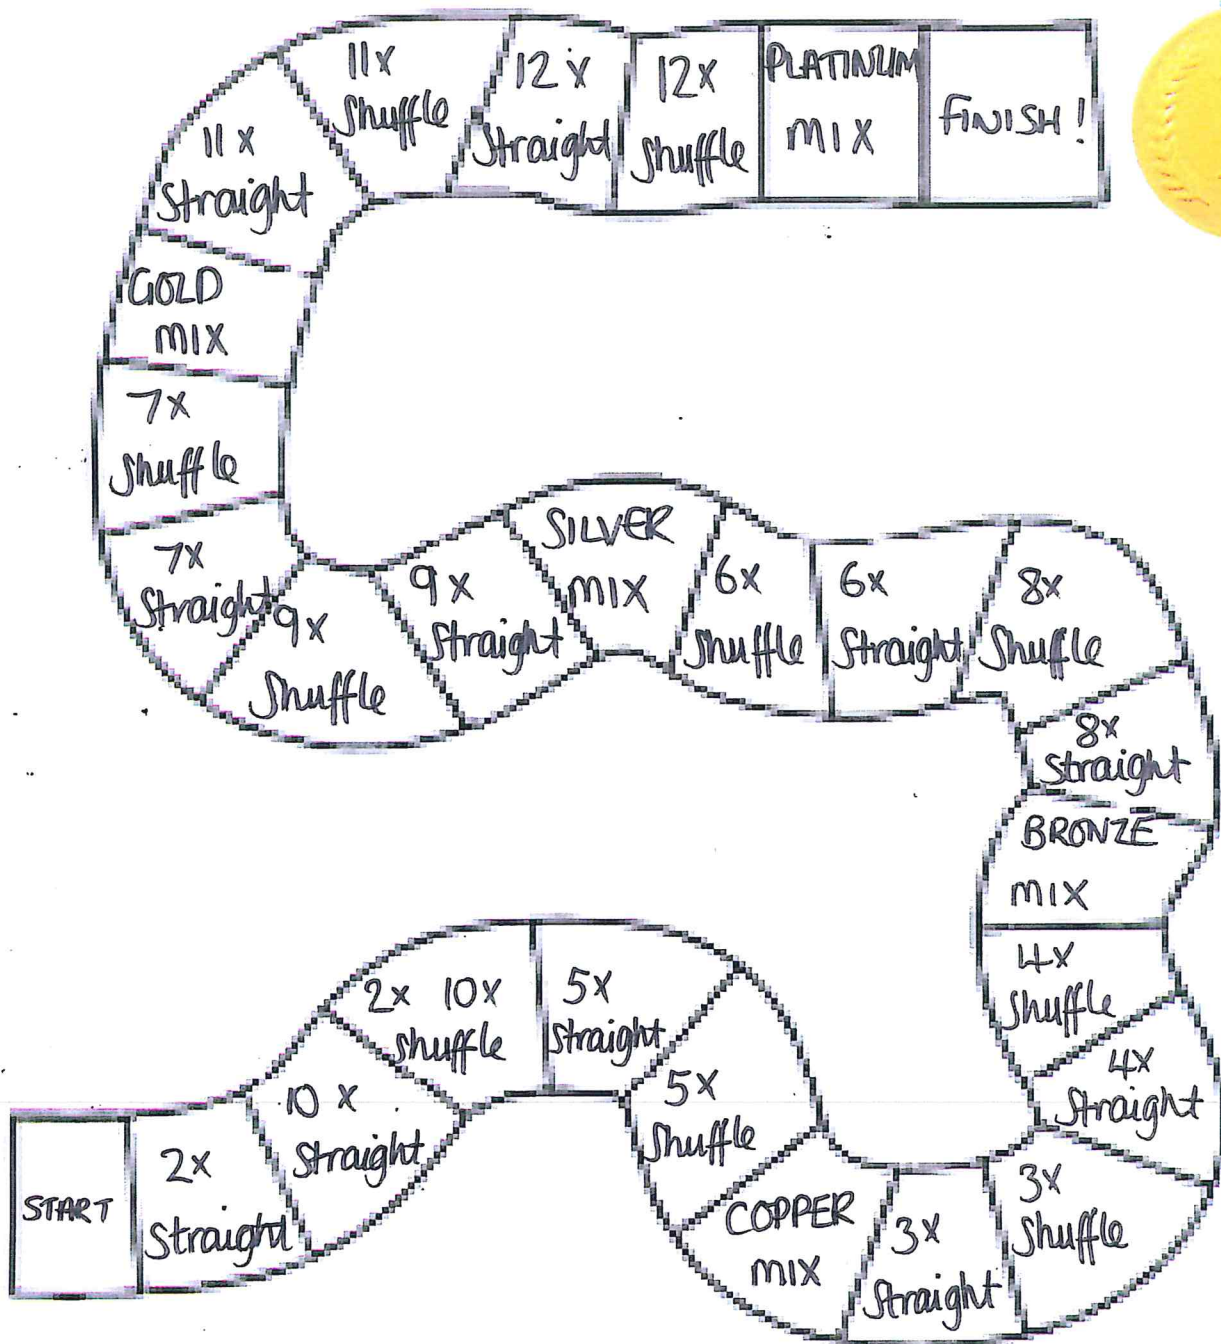 START
2x
Straight
10 x
Straight
2x 10x
Shuffle
5x
Straight
5x
Shuffle
COPPER
MIX
3x
Straight
3x
Shuffle
4x
Straight
4x
Shuffle
BRONZE
MIX
8x
Straight
8x
Shuffle
6x
Straight
6x
Shuffle
SILVER
MIX
9x
Straight
9x
Shuffle
7x
Straight
7x
Shuffle
GOLD
MIX
11x
Straight
11x
Shuffle
12x
Straight
12x
Shuffle
PLATINUM
MIX
FINISH!